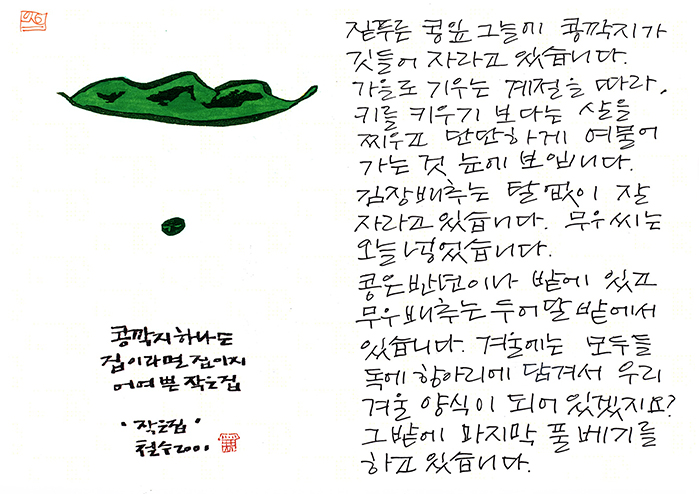 콩깍지 하나도
집이라면 집이지
어여쁜 작은 집
"작은 집"
철수 2001
짙푸른 콩잎 그늘에 콩깍지가
깃들어 자라고 있습니다.
가을로 기우는 계절을 따라,
키를 키우기 보다는 살을
찌우고 단단하게 여물어
가는 것 눈에 보입니다.
김장배추는 탈없이 잘
자라고 있습니다. 무우씨는
오늘 넣었습니다.
콩은 반년이나 밭에 있고
무우 배추는 두어달 밭에서
있습니다. 겨울에는 모두들
독에 항아리에 담겨서 우리
겨울 양식이 되어 있겠지요?
그 밭에 마지막 풀 베기를
하고 있습니다.